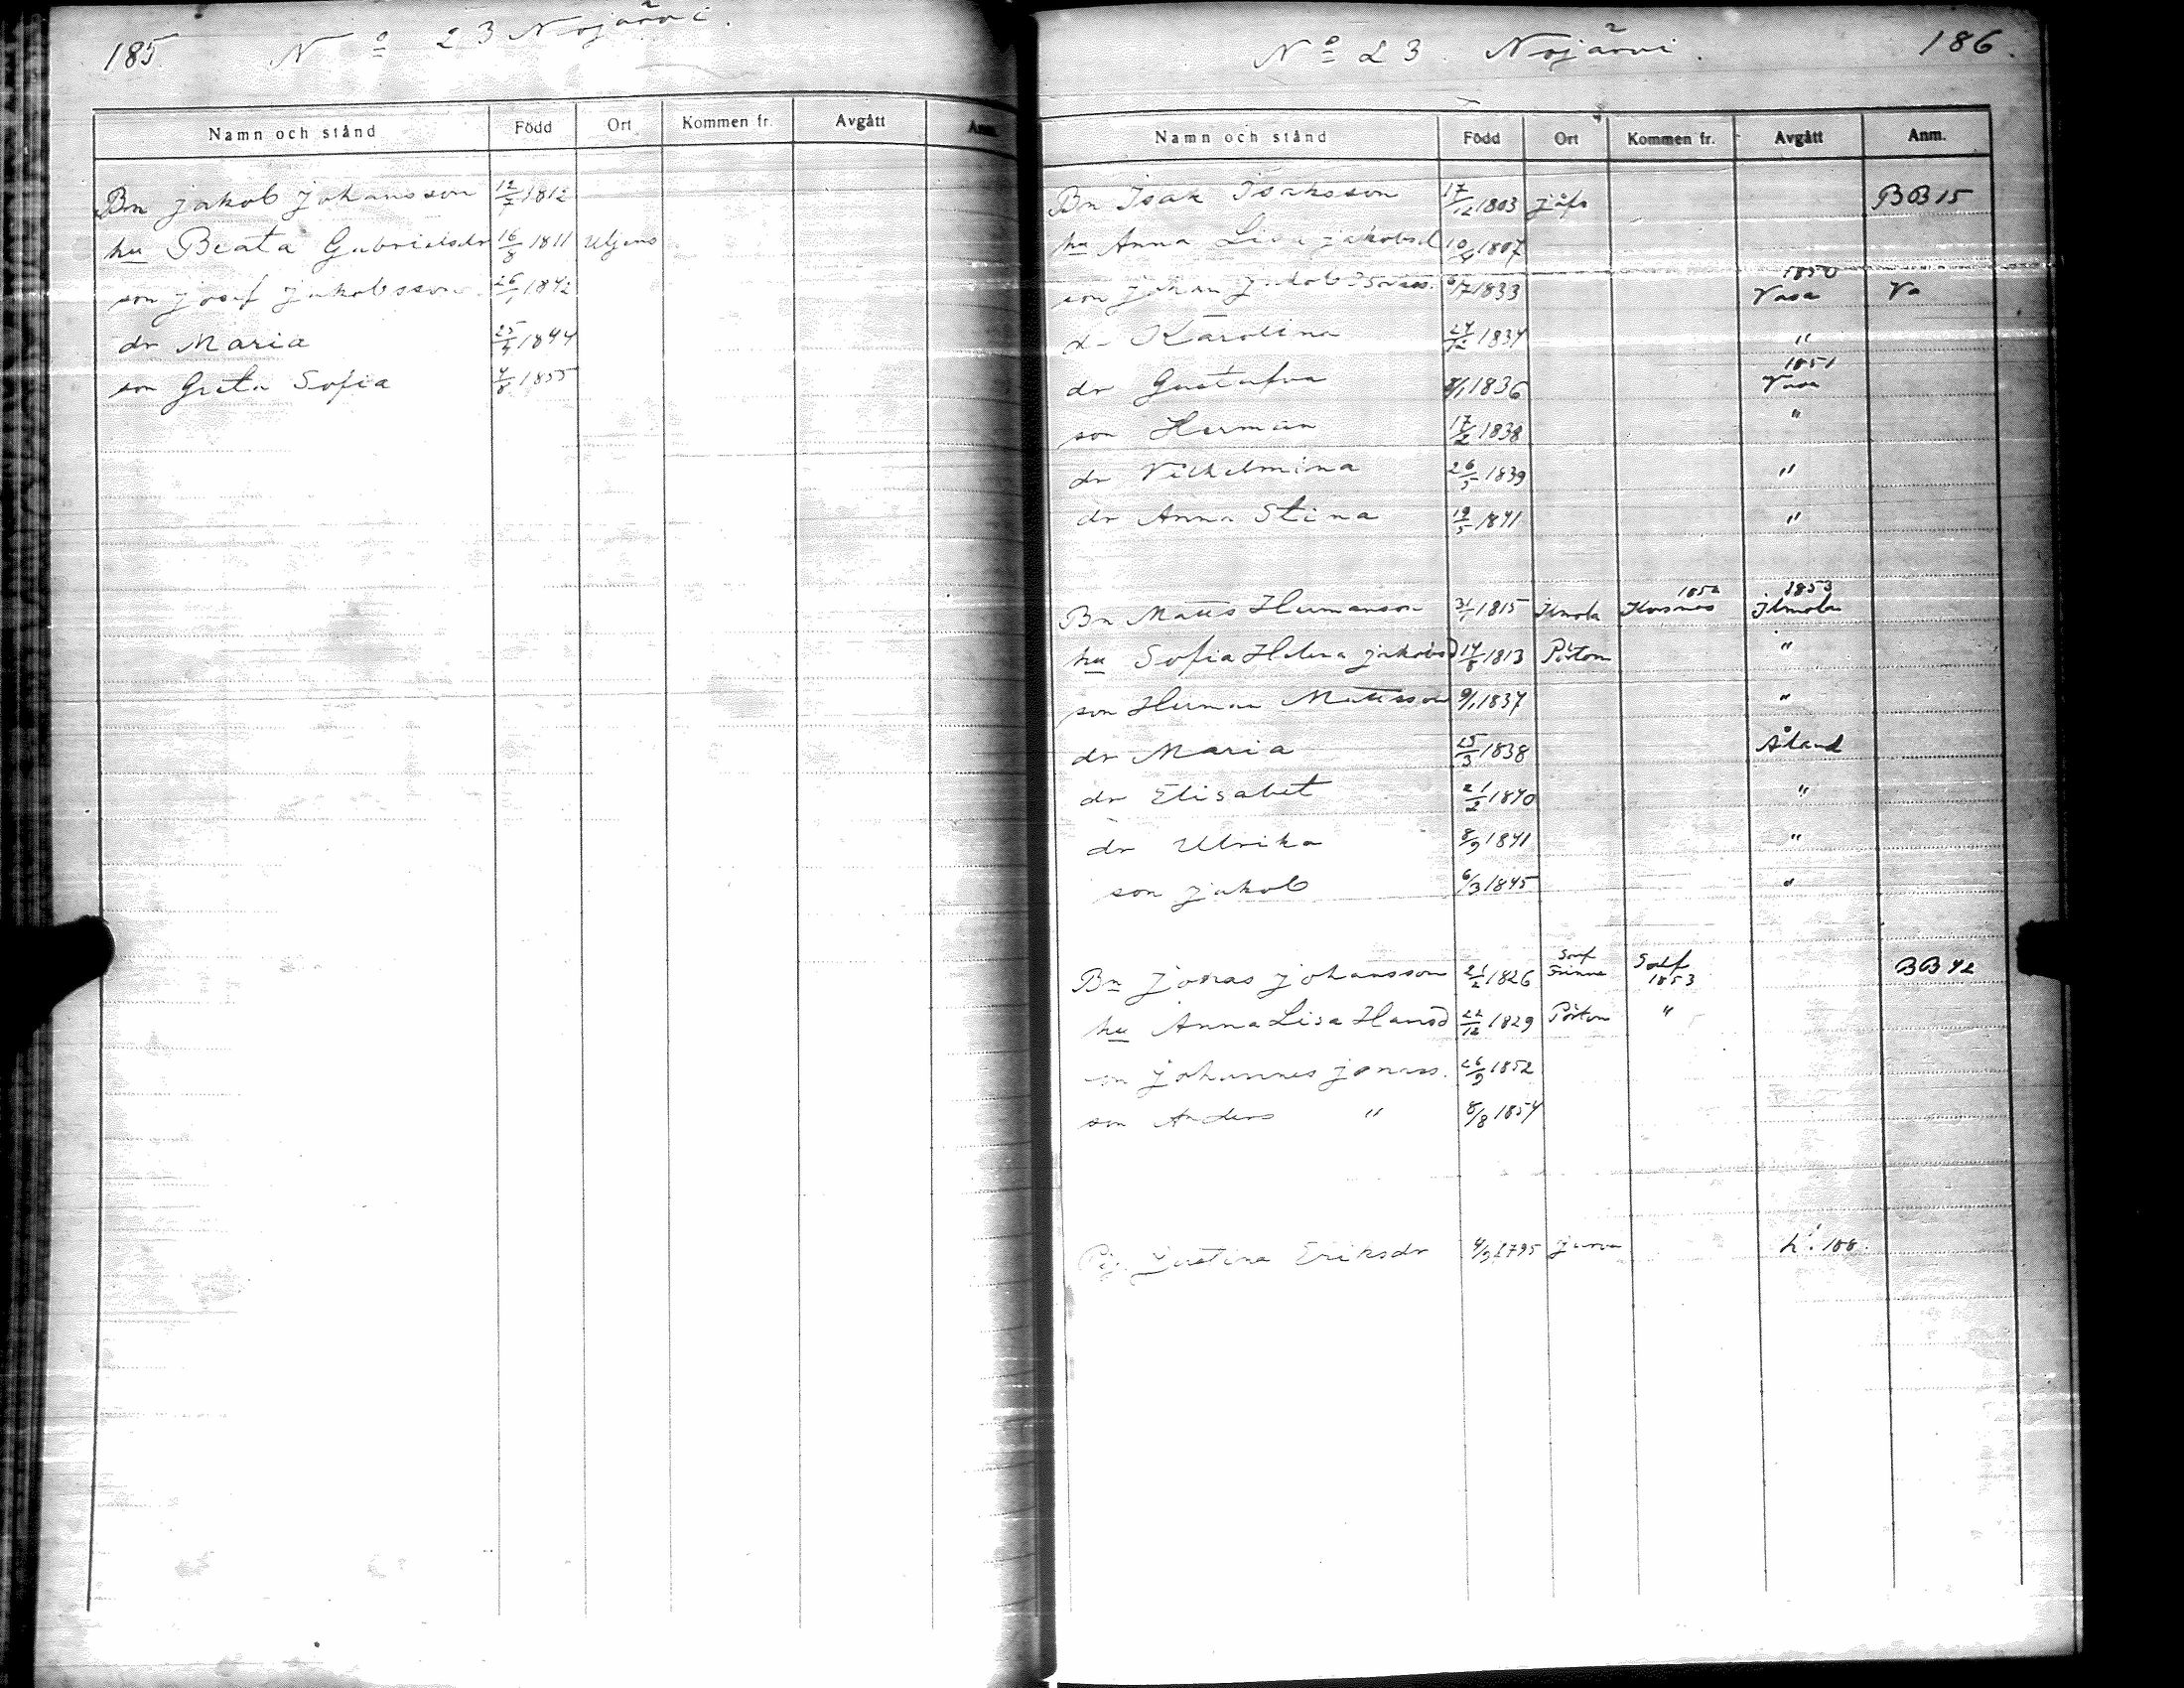 185. No 23 Nojärvi.
Namn och stånd Född Ort Kommen fr. Avgått Anm.
Bn Jakob Johansson 12/7 1812
hu Beata Gabrielsdr 16/8 1811 Uljens
son Josef Jakobsson 26/1 1842
dr Maria 25/4 1844
son Greta Sofia 4/8 1855
No 23. Nojärvi. 186.
Namn och stånd Född Ort Kommen fr. Avgått Anm.
Bn Isak Isaksson 17/12 1803 Jåfs BB 15
hu Anna Lisa Jakobsd 10/4 1807
1850
son Johan Jakob Isakss. 6/7 1833 Vasa Va
dr Karolina 24/12 1834 "
1851
dr Gustafva 8/1 1836 Vasa
son Herman 17/2 1838 "
dr Vilhelmina 26/5 1839 "
dr Anna Stina 19/5 1841 "
1852 1853
Bn Matts Hermanson 31/1 1815 Ilmola Korsnäs Ilmola
hu Sofia Helena Jakobsd 14/8 1813 Pörtom "
son Herman Mattsson 9/1 1837 "
dr Maria 25/3 1838 Åland
dr Elisabet 21/2 1840 "
dr Ulrika 8/9 1841 "
son Jakob 6/3 1845 "
Bn Jonas Johansson 21/2 1826 Solf 1853 BB 42
hu Anna Lisa Hansd 22/12 1829 Pörtom "
son Johannes Jonass. 26/9 1852
son Anders " 8/8 1854
Pig. Justina Eriksdr 4/3 1795 Jurva L. 188.